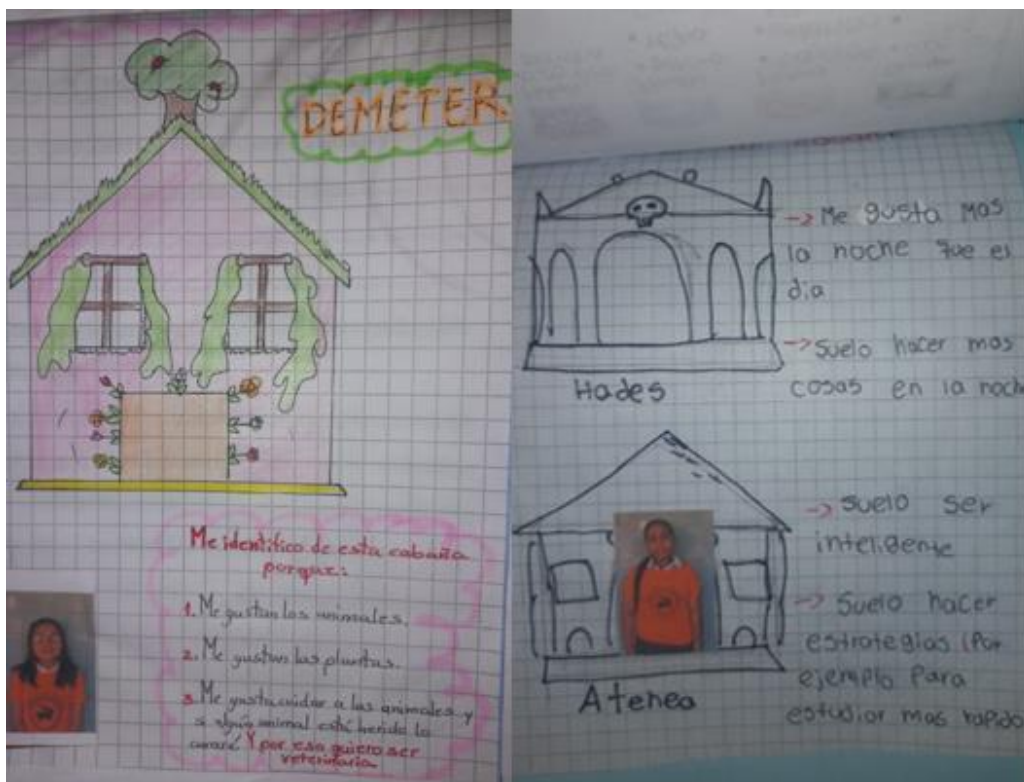 DEMETER
Me identifico de esta cabaña
porque:
1. Me gustan los animales.
2. Me gustan las plantas.
3. Me gusta cuidar a los animales y
si algún animal está herido lo
curaré. Y por eso quiero ser
veterinaria
-> Me gusta mas
la noche que el
dia
-> Suelo hacer mas
cosas en la noche
Hades
-> suelo ser
inteligente
-> Suelo hacer
estrategias (Por
ejemplo Para
estudiar mas rapido
Atenea